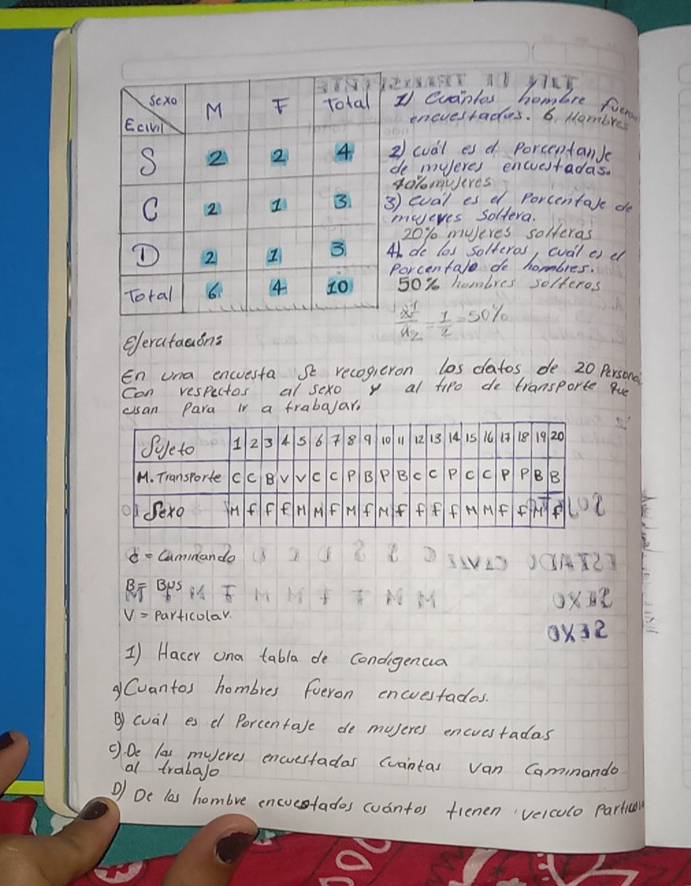 Sexo M F Total
Ecivil
S 2 2 4
C 2 1 3
D 2 1 3
Total 6 4 10
1) Cuántos hombre fueron
encuestados. 6 Hombres
2) cuál es el Porcentanje
de mujeres encuestadas.
40% mujeres
3) cuál es el Porcentaje de
mujeres Soltera.
20% mujeres solteras
4) de los solteros, cuál es el
Porcentaje de hombres.
50% hombres solteros
1/2 = 50%
En una encuesta Se recogieron los datos de 20 Persona
Con respectos al sexo y al tipo de transporte que
usan Para ir a trabajar.
Sujeto 1 2 3 4 5 6 7 8 9 10 11 12 13 14 15 16 17 18 19 20
M. Transporte C C B V V C C P B P B C C P C C P P B B
Sexo M F F F M M F M F M F F F F M M F F M F
C = Caminando
B = Bus
V = Particular.
1) Hacer una tabla de Condigencia
a) Cuantos hombres fueron encuestados.
B) cuál es el Porcentaje de mujeres encuestadas
c) De las mujeres encuestadas Cuántas Van Caminando
al trabajo
D) De los hombre encuestados cuántos tienen veiculo Particul